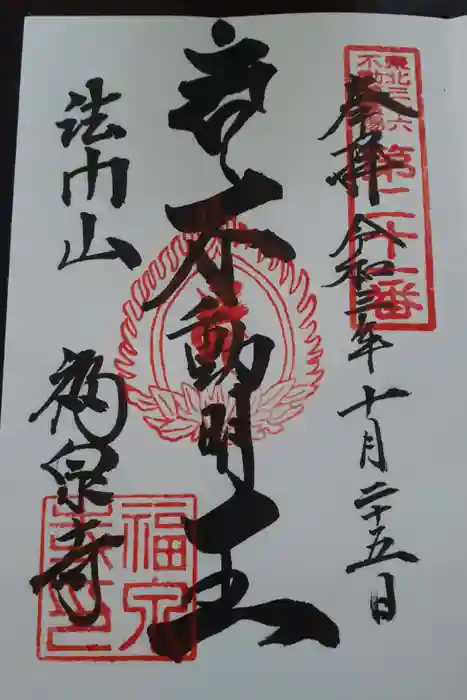 東北三十六
不動尊霊場
第二十一番
奉拝 令和三年十月二十五日
不動明王
法門山
福泉寺
福泉